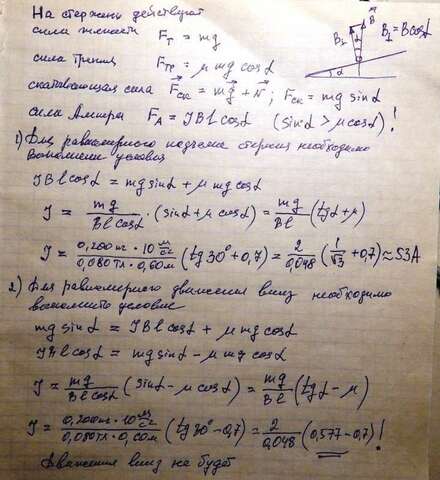 На стержень действуют
сила тяжести Fт = mg
сила трения Fтр = μ mg cosα
скатывающая сила Fск = mg + N ; Fск = mg sinα
сила Ампера FА = JBl cosα (sinα > μcosα) !
B B⊥ α B⊥ = B cosα
1) Для равномерного подъема стержня необходимо
выполнение условия
JBl cosα = mg sinα + μ mg cosα
J = mg/Bl cosα · (sinα + μ cosα) = mg/Bl (tgα + μ)
J = 0,200кг · 10 м/с²/0,080Тл · 0,60м (tg30° + 0,7) = 2/0,048 (1/√3 + 0,7) ≈ 53А
2) Для равномерного движения вниз необходимо
выполнить условие
mg sinα = JBl cosα + μ mg cosα
JBl cosα = mg sinα − μ mg cosα
J = mg/Bl cosα (sinα − μ cosα) = mg/Bl (tgα − μ)
J = 0,200кг · 10 м/с²/0,080Тл · 0,60м (tg30° − 0,7) = 2/0,048 (0,577 − 0,7) !
Движения вниз не будет